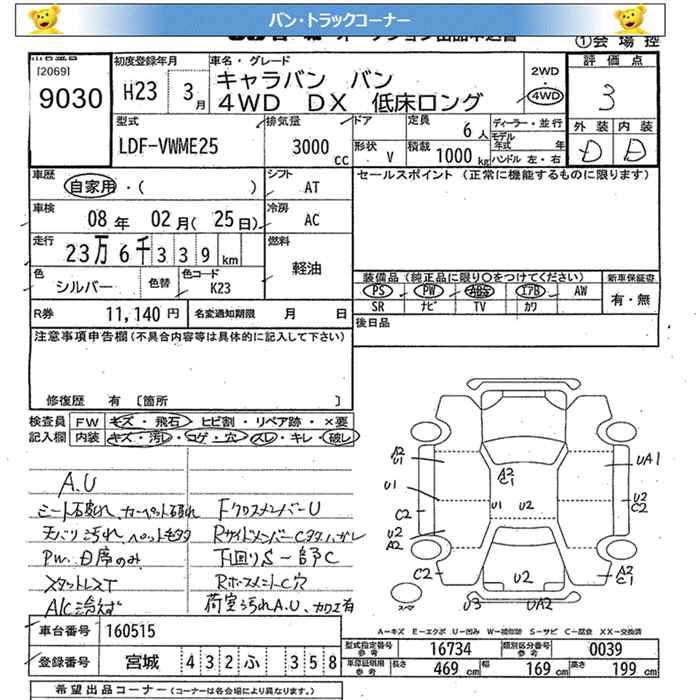 バン・トラックコーナー
オークション出品申込書
①会場控
出品番号
[2069]
9030
初度登録年月
H23 3月
車名・グレード
キャラバン バン
4WD DX 低床ロング
2WD
・
4WD
評価点
3
外装 内装
D D
型式
LDF-VWME25
排気量
3000 CC
ドア
形状 V
定員 6人
積載 1000 kg
ディーラー・並行
モデル年式 年
ハンドル 左・右
車歴
自家用・( )
シフト
AT
セールスポイント (正常に機能するものに限ります)
車検
08年 02月(25日)
冷房
AC
走行
23万6千339km
燃料
軽油
色
シルバー
色替
色コード
K23
装備品(純正品に限り○をつけてください)
新車保証書
PS PW ABS エアB AW
有・無
SR ナビ TV カワ
R券 11,140円
名変通知期限 月 日
後日品
注意事項申告欄(不具合内容等は具体的に記入して下さい)
修復歴 有 [箇所 ]
検査員
記入欄
FW キズ・飛石・ヒビ割・リペア跡・×要
内装 キズ・汚レ・コゲ・穴・スレ・キレ・破レ
A.U
シート破れ、カーペット破れ
天バリ汚れ、ヘッド
PW 日席のみ
スタットレスT
A/C冷えず
FクロスメンバーU
RサイドメンバーC
下回りS一部C
C穴
荷室汚れA.U、カロエ有
A2
U1
U1
C2
U2
A2
C2
A2
C1
U1 U2
U2
U3
UA2
UA1
U2
C2
A2
C1
スペア
車台番号 160515
登録番号 宮城 432 ふ 358
A-キズ E-エクボ U-凹み W-補修跡 S-サビ C-腐食 XX-交換済
型式指定番号 参考 16734
類別区分番号 参考 0039
車庫証明用 参考 長さ 469cm 幅 169cm 高さ 199cm
希望出品コーナー(コーナーは各会場により異なります。)